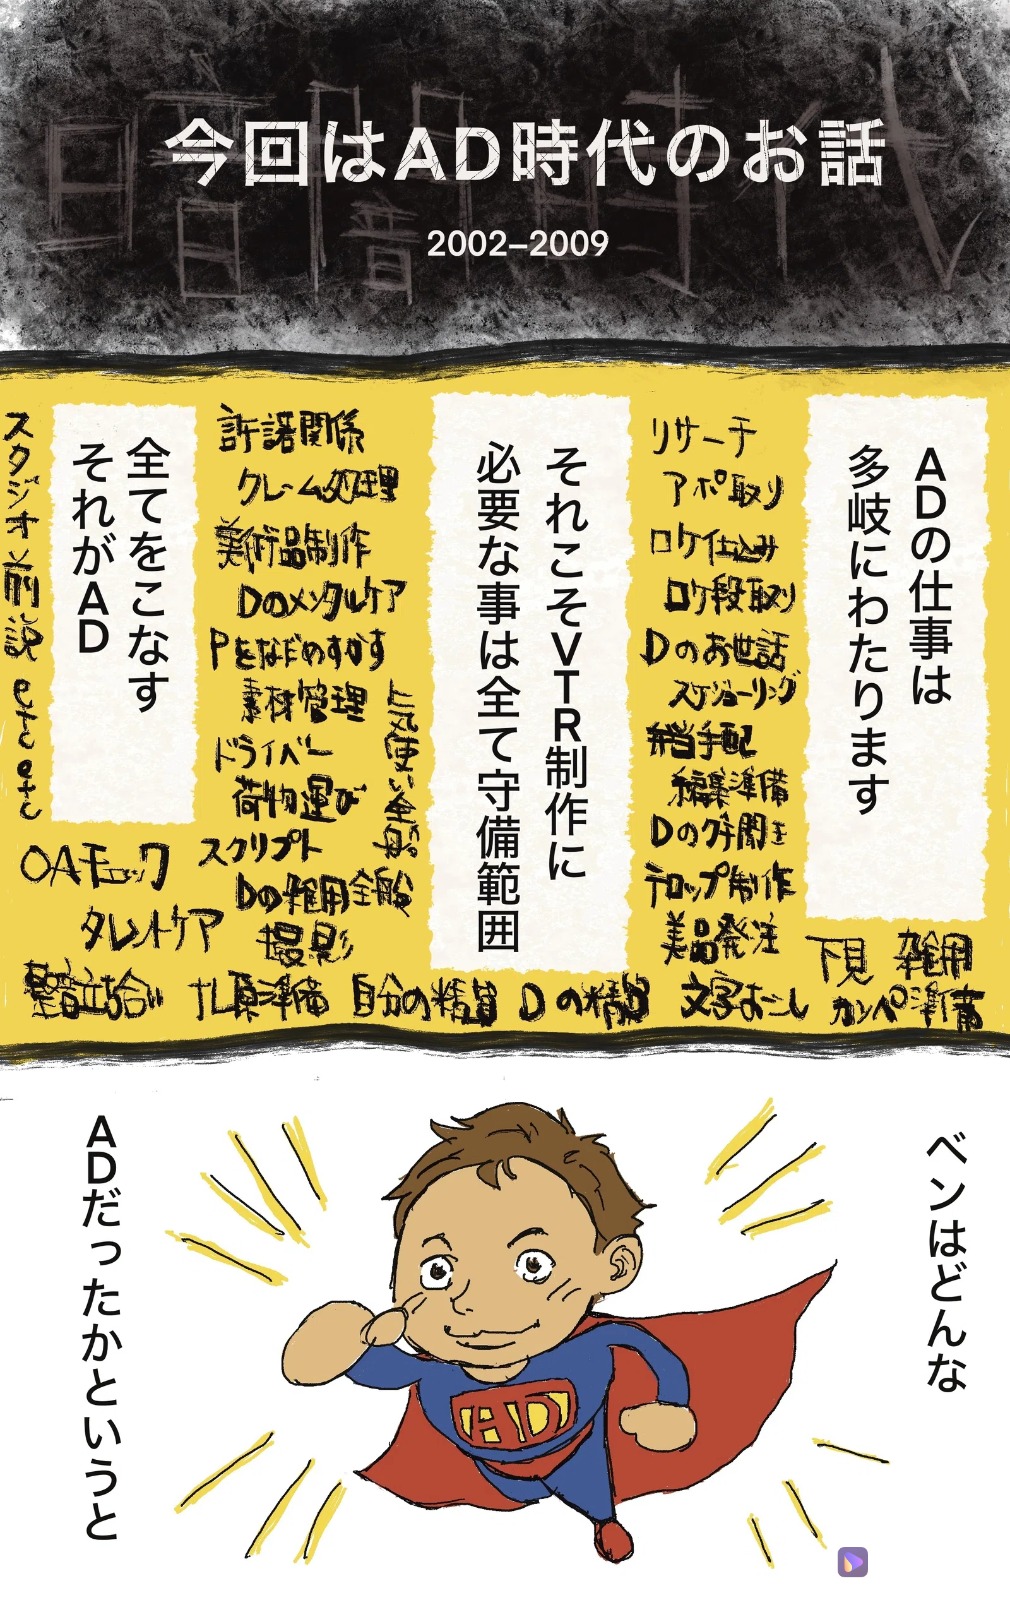 今回はAD時代のお話
2002–2009
ADの仕事は
多岐にわたります
リサーチ
アポ取り
ロケ仕込み
ロケ段取り
Dのお世話
スケジューリング
弁当手配
編集準備
Dのグチ聞き
テロップ制作
美品発注
下見
雑用
カンペ準備
それこそVTR制作に
必要な事は全て守備範囲
許諾関係
クレーム処理
美術品制作
Dのメンタルケア
Pをなだめすかす
素材管理
ドライバー
荷物運び
気使い全般
スクリプト
Dの雑用全般
撮影
文字おこし
Dの精算
自分の精算
全てをこなす
それがAD
スタジオ前説
etc etc
OAチェック
タレントケア
整音立ち合い
ベンはどんな
ADだったかというと
AD